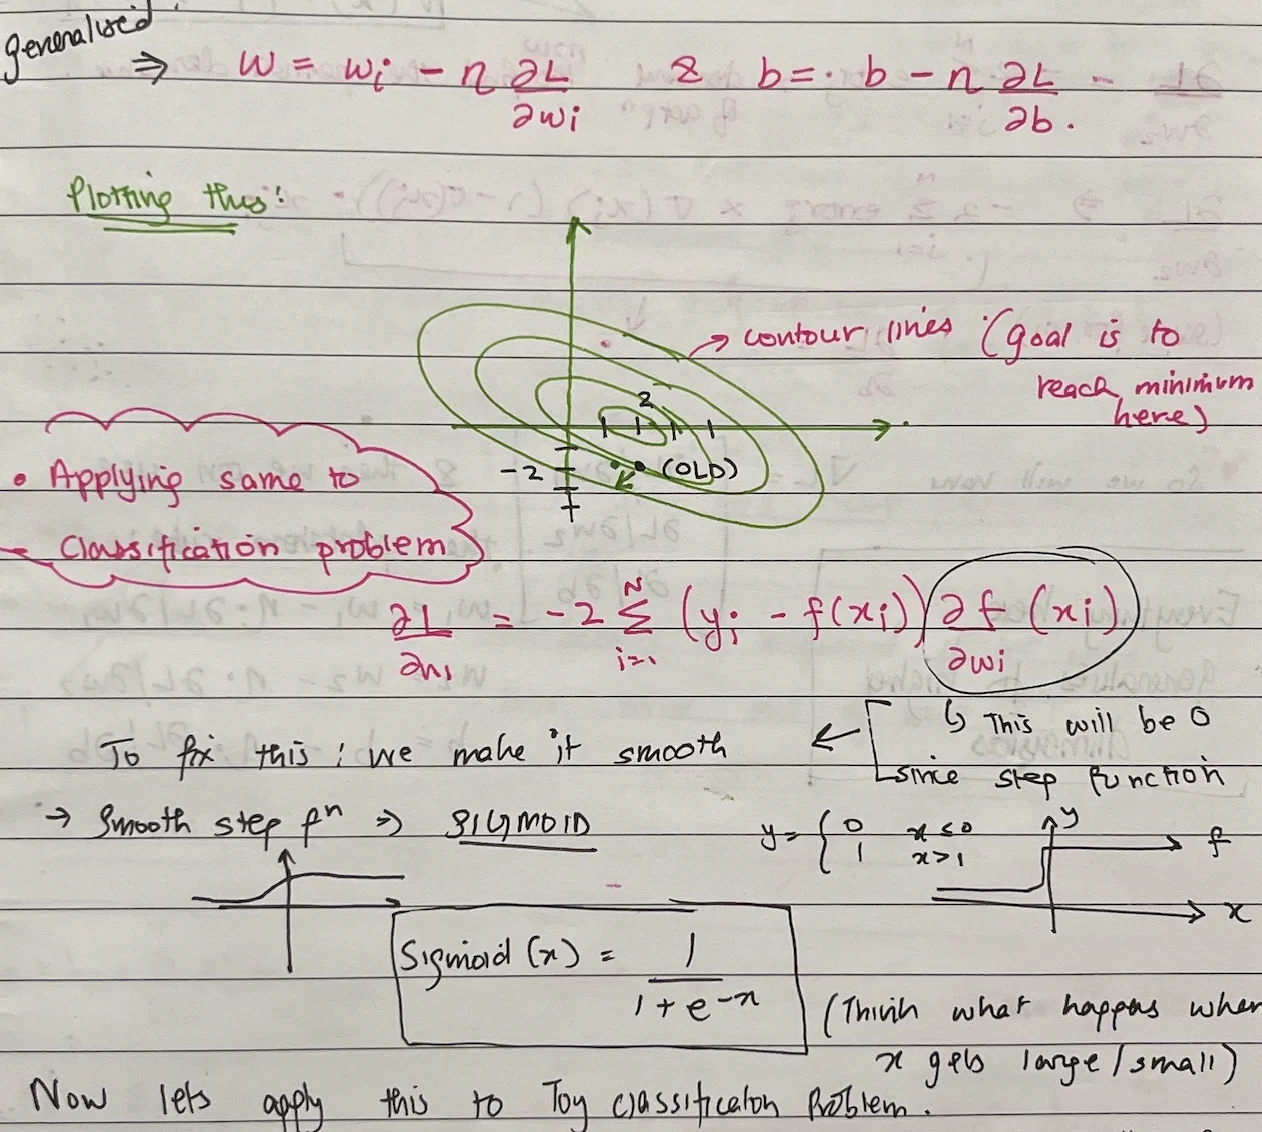 generalised
⇒ w = wi - η ∂L/∂wi & b = · b - η ∂L/∂b.
Plotting this:
contour lines (goal is to
reach minimum
here)
2
-2
(OLD)
• Applying same to
Classification problem
∂L/∂w1 = -2 N Σ i=1 (yi - f(xi)) ∂f/∂wi (xi)
↳ This will be 0
since step function
To fix this: we make it smooth
→ Smooth step fn ⇒ SIGMOID
y = { 0 x ≤ 0
1 x > 1
y
f
x
Sigmoid (x) = 1/(1 + e^-x)
(Think what happens when
x gets large/small)
Now lets apply this to Toy classificaton Problem.